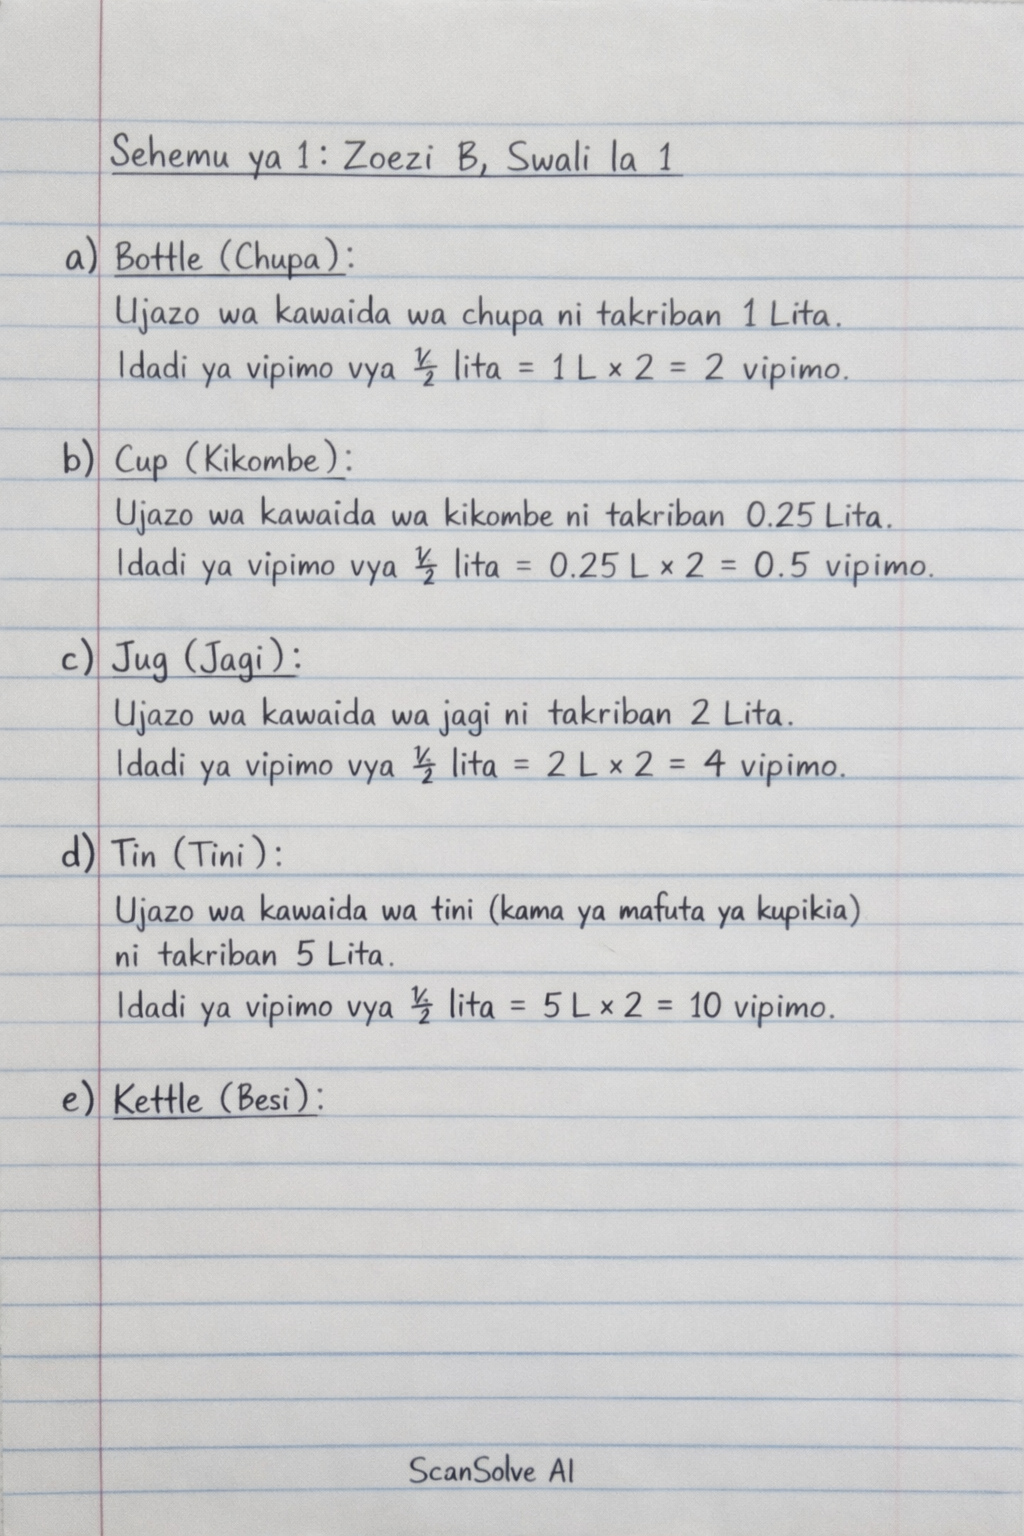 Sehemu ya 1: Zoezi B, Swali la 1
a) Bottle (Chupa):
Ujazo wa kawaida wa chupa ni takriban 1 Lita.
Idadi ya vipimo vya ½ lita = 1 L × 2 = 2 vipimo.
b) Cup (Kikombe):
Ujazo wa kawaida wa kikombe ni takriban 0.25 Lita.
Idadi ya vipimo vya ½ lita = 0.25 L × 2 = 0.5 vipimo.
c) Jug (Jagi):
Ujazo wa kawaida wa jagi ni takriban 2 Lita.
Idadi ya vipimo vya ½ lita = 2 L × 2 = 4 vipimo.
d) Tin (Tini):
Ujazo wa kawaida wa tini (kama ya mafuta ya kupikia)
ni takriban 5 Lita.
Idadi ya vipimo vya ½ lita = 5 L × 2 = 10 vipimo.
e) Kettle (Besi):
ScanSolve AI